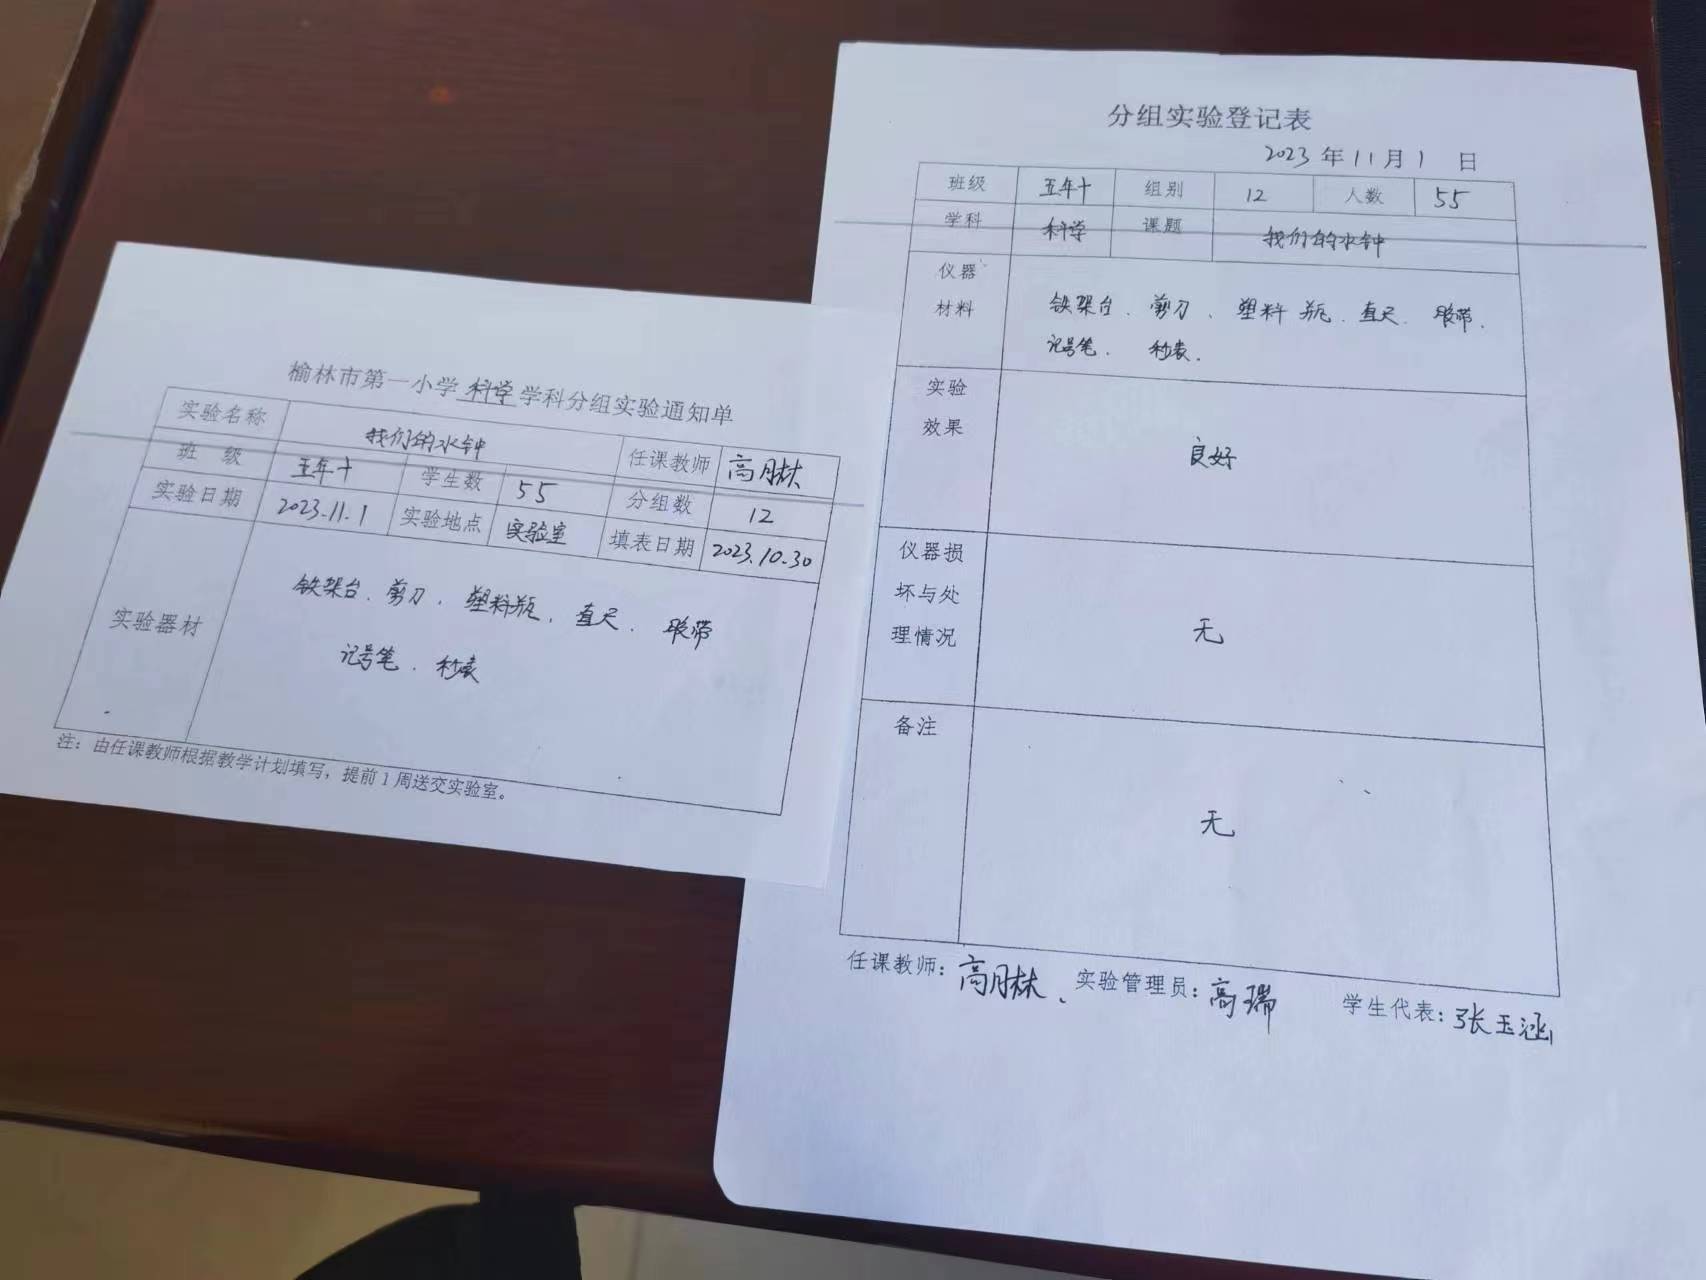 榆林市第一小学科学学科分组实验通知单
实验名称 我们的水钟 任课教师 高月林
班 级 五年十 学生数 55 分组数 12
实验日期 2023.11.1 实验地点 实验室 填表日期 2023.10.30
实验器材 铁架台、剪刀、塑料瓶、直尺、胶带
记号笔、秒表
注：由任课教师根据教学计划填写，提前1周送交实验室。
分组实验登记表
2023年11月1日
班级 五年十 组别 12 人数 55
学科 科学 课题 我们的水钟
仪器
材料
铁架台、剪刀、塑料瓶、直尺、胶带、
记号笔、秒表.
实验
效果
良好
仪器损
坏与处
理情况
无
备注
无
任课教师：高月林、 实验管理员：高瑞 学生代表：张玉涵